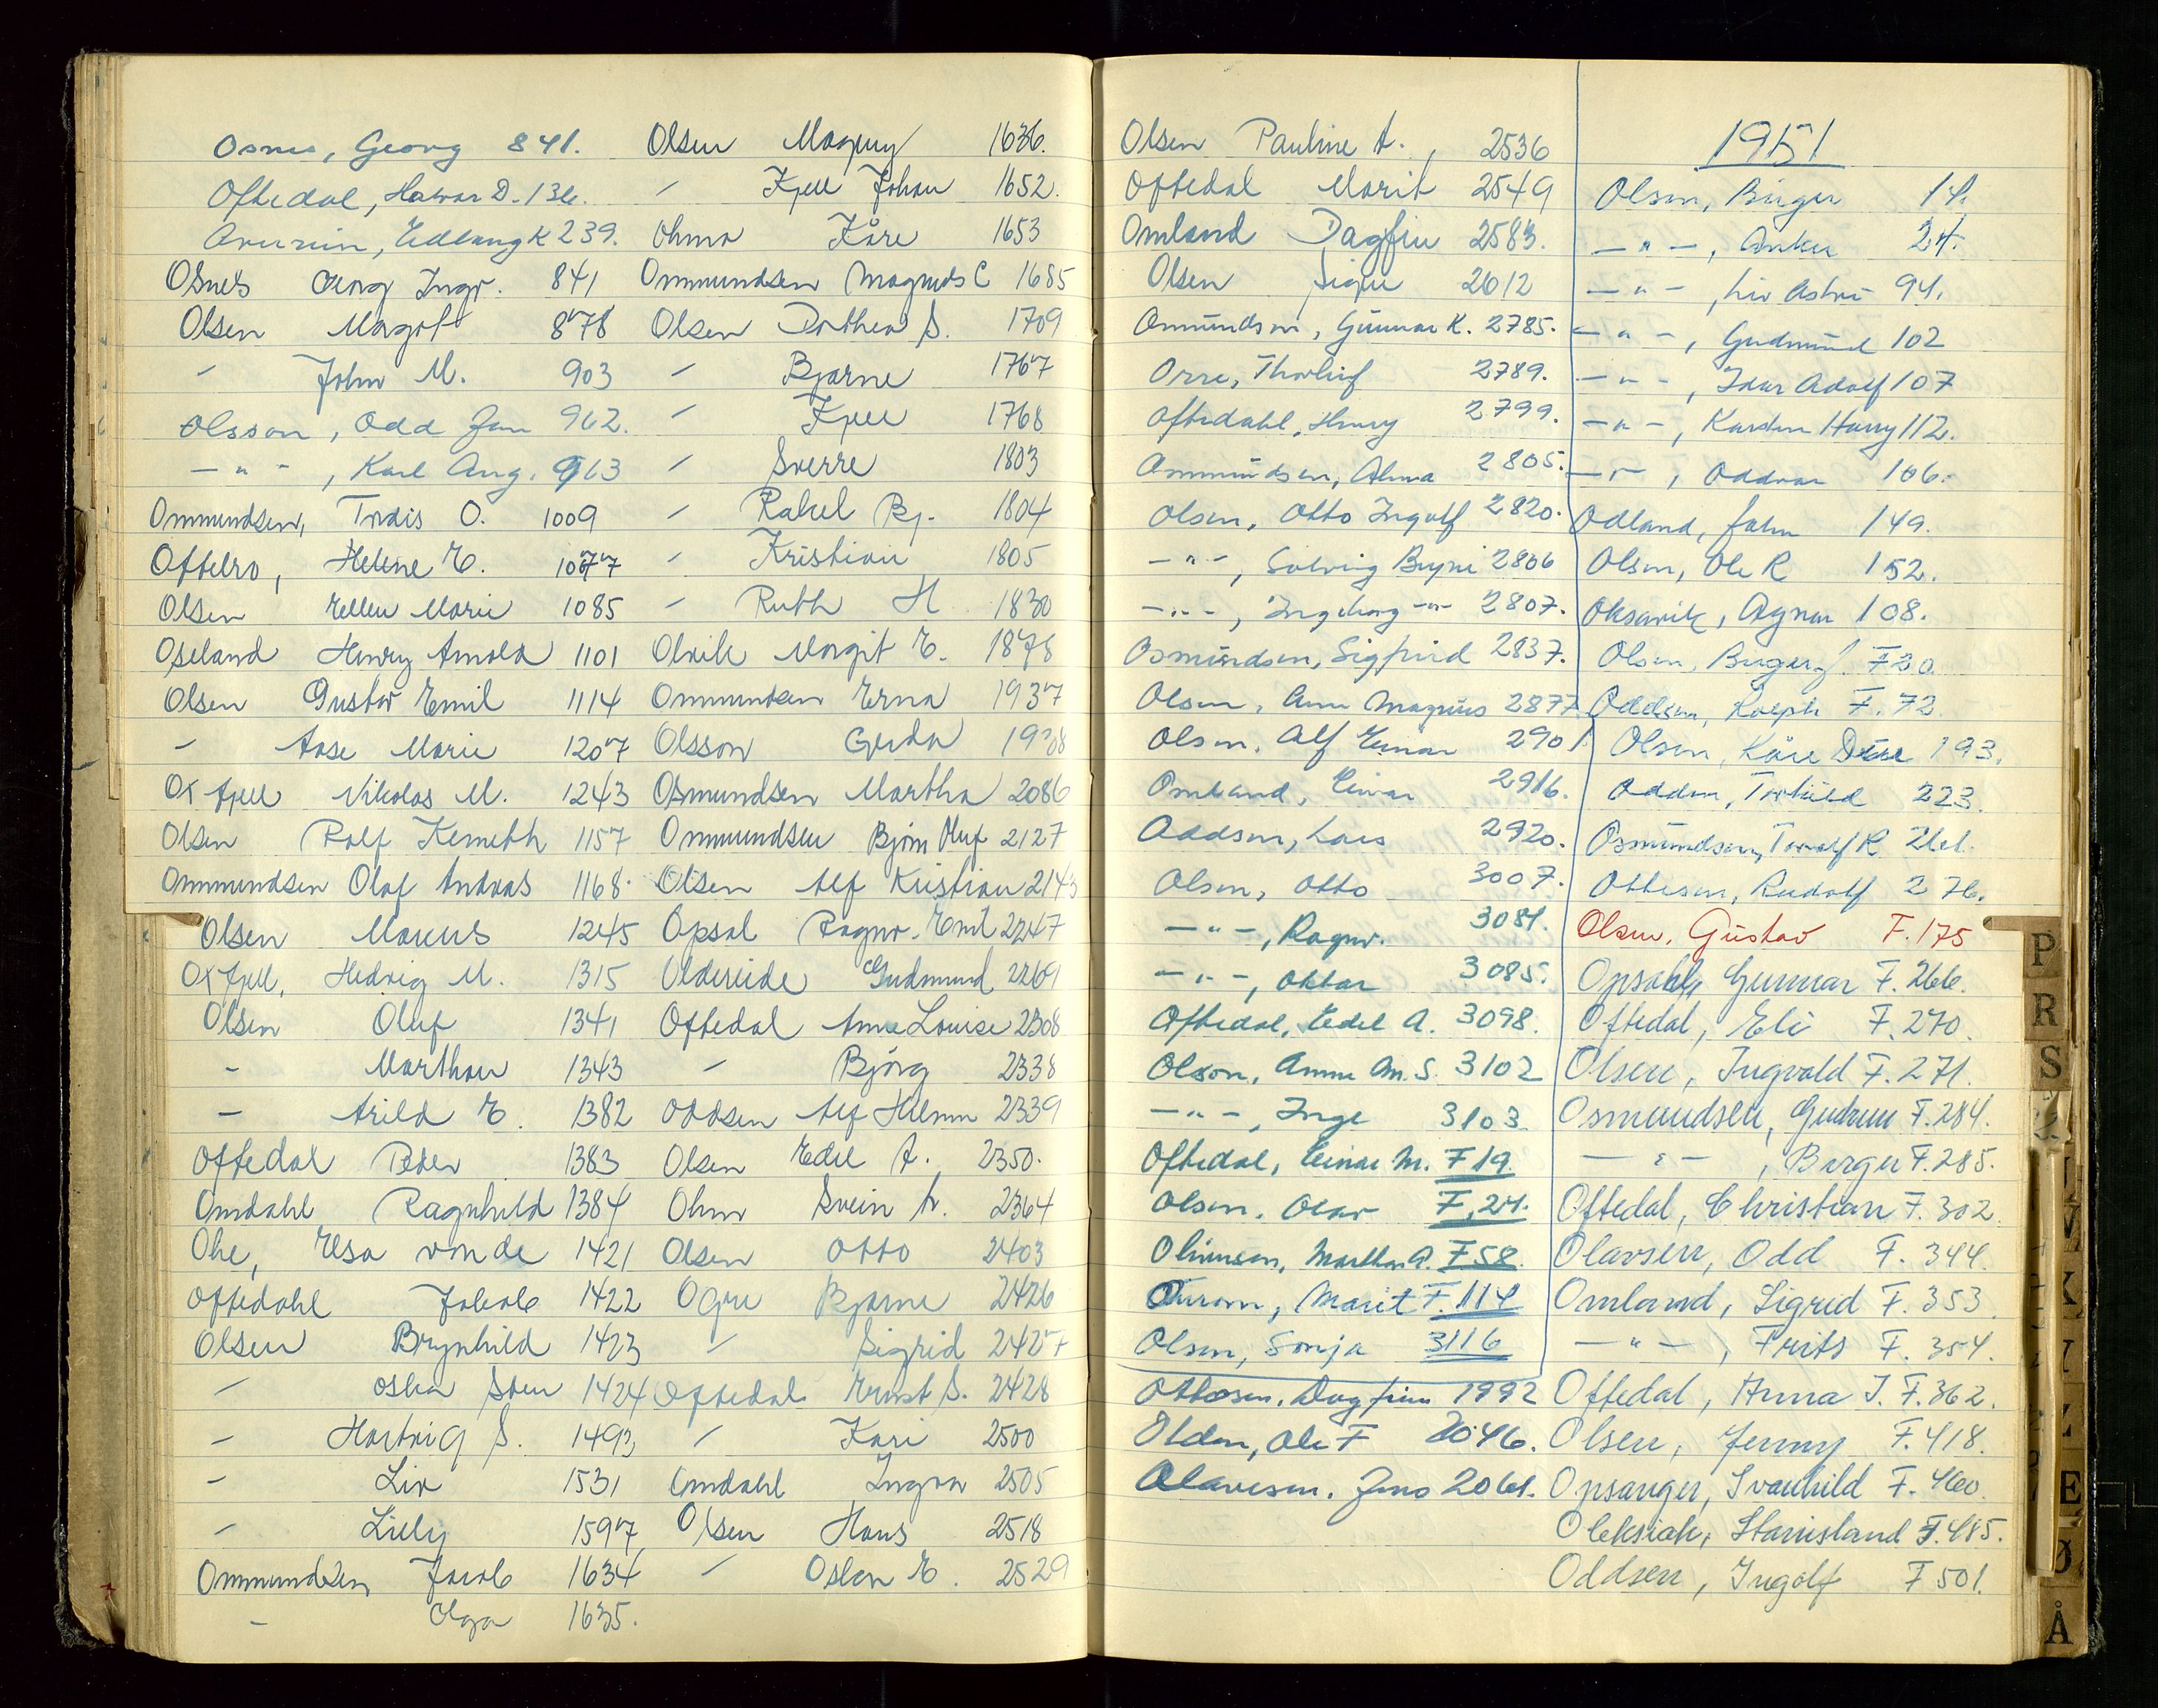 Osnes, Georg 841.
Oftedal, Havar D. 136.
239.
Osnes Georg Ingv. 841
Olsen Margot 878
" John M. 903
Olsson, Odd Jan 962.
— " —, Karl Aug. 963
Ommundsen, Tordis O. 1009
Oftebro, Helene E. 1077
Olsen Ellen Marie 1085
Opeland Henry Arnold 1101
Olsen Gustav Emil 1114
" Aase Marie 1207
Oxfjell Nikolas M. 1243
Olsen Rolf Kenneth 1157
Ommundsen Olaf Andreas 1168.
Olsen Marius 1245
Oxfjell, Hedvig M. 1315
Olsen Oluf 1341
- Marthon 1343
- Arild E. 1382
Oftedal Peder 1383
Omdahl Ragnhild 1384
Ohe, Elsa von de 1421
Oftedahl Jakob 1422
Olsen Brynhild 1423
" Osker Sten 1424
- Hartvig S. 1493
- Liv 1531
" Lilly 1597
Ommundsen Jacob 1634
- Olga 1635.
Olsen Magny 1636.
" Kjell Johan 1652.
Ohma Kåre 1653
Ommundsen Magnus C 1685
Olsen Dorthea S. 1709
" Bjarne 1767
" Kjell 1768
" Sverre 1803
" Rakel Bj. 1804
" Kristian 1805
" Ruth H 1830
Olvik Margit E. 1878
Ommundsen Erna 1937
Olsson Gerda
Osmundsen Martha 2086
Ommundsen Bjørn Oluf 2127
Olsen Alf Kristian 2143
Opsal Ragnv. Emil 2247
Oldereide Gudmund 2269
Oftedal Anne Louise 2308
" Bjørg 2338
Oddsen Alf Helmm 2339
Olsen Edel A. 2350.
Ohm Svein A. 2364
Olsen Otto 2403
Ogre Bjarne 2426
" Sigrid 2427
Oftedal Ernst S. 2428
" Kari 2500
Omdahl Ingva 2505
Olsen Hans 2518
" Oskar E. 2529
Olsen Pauline A., 2536
Oftedal Marit 2549
Omland Dagfin 2583.
Olsen Signe 2612
Omundsen, Gunnar K. 2785.
Orre, Thorleif 2789.
Oftedahl, Henry 2799.
Ommundsen, Alma 2805.
Olsen, Otto Ingolf 2820.
— " —, Solveig Bryni 2806
— " —, Ingeborg —"— 2807.
Osmundsen, Sigfrid 2837.
Olsen, Ann Magnus 2877
Olsen, Alf Einar 2901
Omland, Einar 2916.
Oddsen, Lars 2920.
Olsen, Otto 3007.
— " —, Ragnv. 3084.
— " —, Oktar 3085.
Oftedal, Edel A. 3098.
Olsson, Anna M. S. 3102
— " —, Inge 3103
Oftedal, Einar M. F 19.
Olsen, Olav F. 24.
Martha A. F 58.
Marit F. 114
Olsen, Sonja 3116
Ottosen, Dagfinn 1992
Olden, Ole F 2046.
Olavesen, Jens 2061.
1951
Olsen, Birger 14.
— " —, Anker 24.
— " —, Liv Astri 94.
— " —, Gudmund 102
— " —, Idar Adolf 107
— " —, Karsten Harry 112.
— " —, Oddvar 106.
Odland, John 149.
Olsen, Ole R 152.
Oksavik, Agnar 108.
Olsen, Birger J. F 30.
Oddsen, Kolbj. F. 72.
Olsen, Kåre 193.
Oddsen, Torhild 223.
Osmundsen, Torolf R 261.
Ottesen, Rudolf 276.
Olsen, Gustav F. 175
Opsahl, Gunnar F. 266.
Oftedal, Eli F. 270.
Olsen, Ingvald F. 271.
Osmundsen, Gudrun F. 284.
— " —, Birger F. 285.
Oftedal, Christian F. 302.
Olavsen, Odd F. 344.
Omland, Sigrid F. 353.
— " —, Frits F. 354.
Oftedal, Anna J. F. 362.
Olsen, Jenny F. 418.
Opsanger, Svanhild F. 460.
Oleksiak, Stanisland F. 485.
Oddsen, Ingolf F 501.
P
R
S
E
Ø
Å